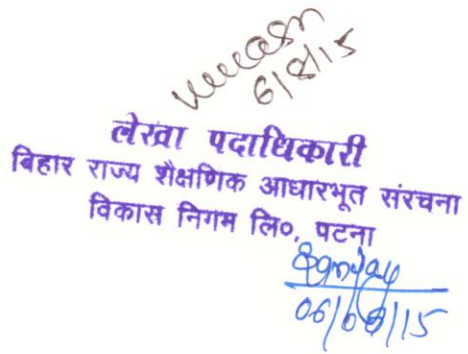 6/8/15
लेखा पदाधिकारी
बिहार राज्य शैक्षणिक आधारभूत संरचना
विकास निगम लि०, पटना